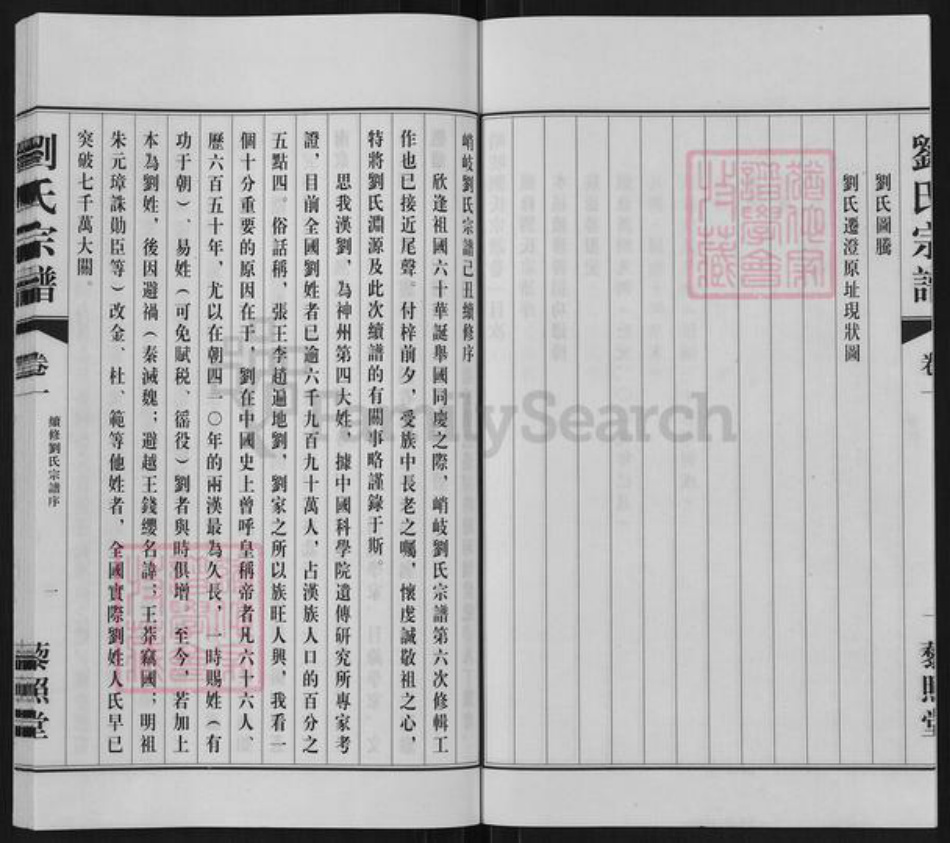 劉氏宗譜
卷一
藜照堂
劉氏圖騰
劉氏遷澄原址現狀圖
峭岐劉氏宗譜己丑續修序
欣逢祖國六十華誕舉國同慶之際，峭岐劉氏宗譜第六次修輯工
作也已接近尾聲，付梓前夕，受族中長老之囑，懷虔誠敬祖之心，
特將劉氏淵源及此次續譜的有關事略謹錄于斯。
思我漢劉，為神州第四大姓，據中國科學院遺傳研究所專家考
證，目前全國劉姓者已逾六千九百九十萬人，占漢族人口的百分之
五點四，俗話稱，張王李趙遍地劉，劉家之所以族旺人興，我看一
個十分重要的原因在于，劉在中國史上曾呼皇稱帝者凡六十六人、
歷六百五十年，尤以在朝四一〇年的兩漢最為久長，一時賜姓（有
功于朝）、易姓（可免賦税、徭役）劉者與時俱增，至今，若加上
本為劉姓，後因避禍（秦滅魏；避越王錢繆名諱；王莽竊國；明祖
朱元璋誅勛臣等）改金、杜、範等他姓者，全國實際劉姓人氏早已
突破七千萬大關。
劉氏宗譜
卷一
續修劉氏宗譜序
一
藜照堂
FamilySearch